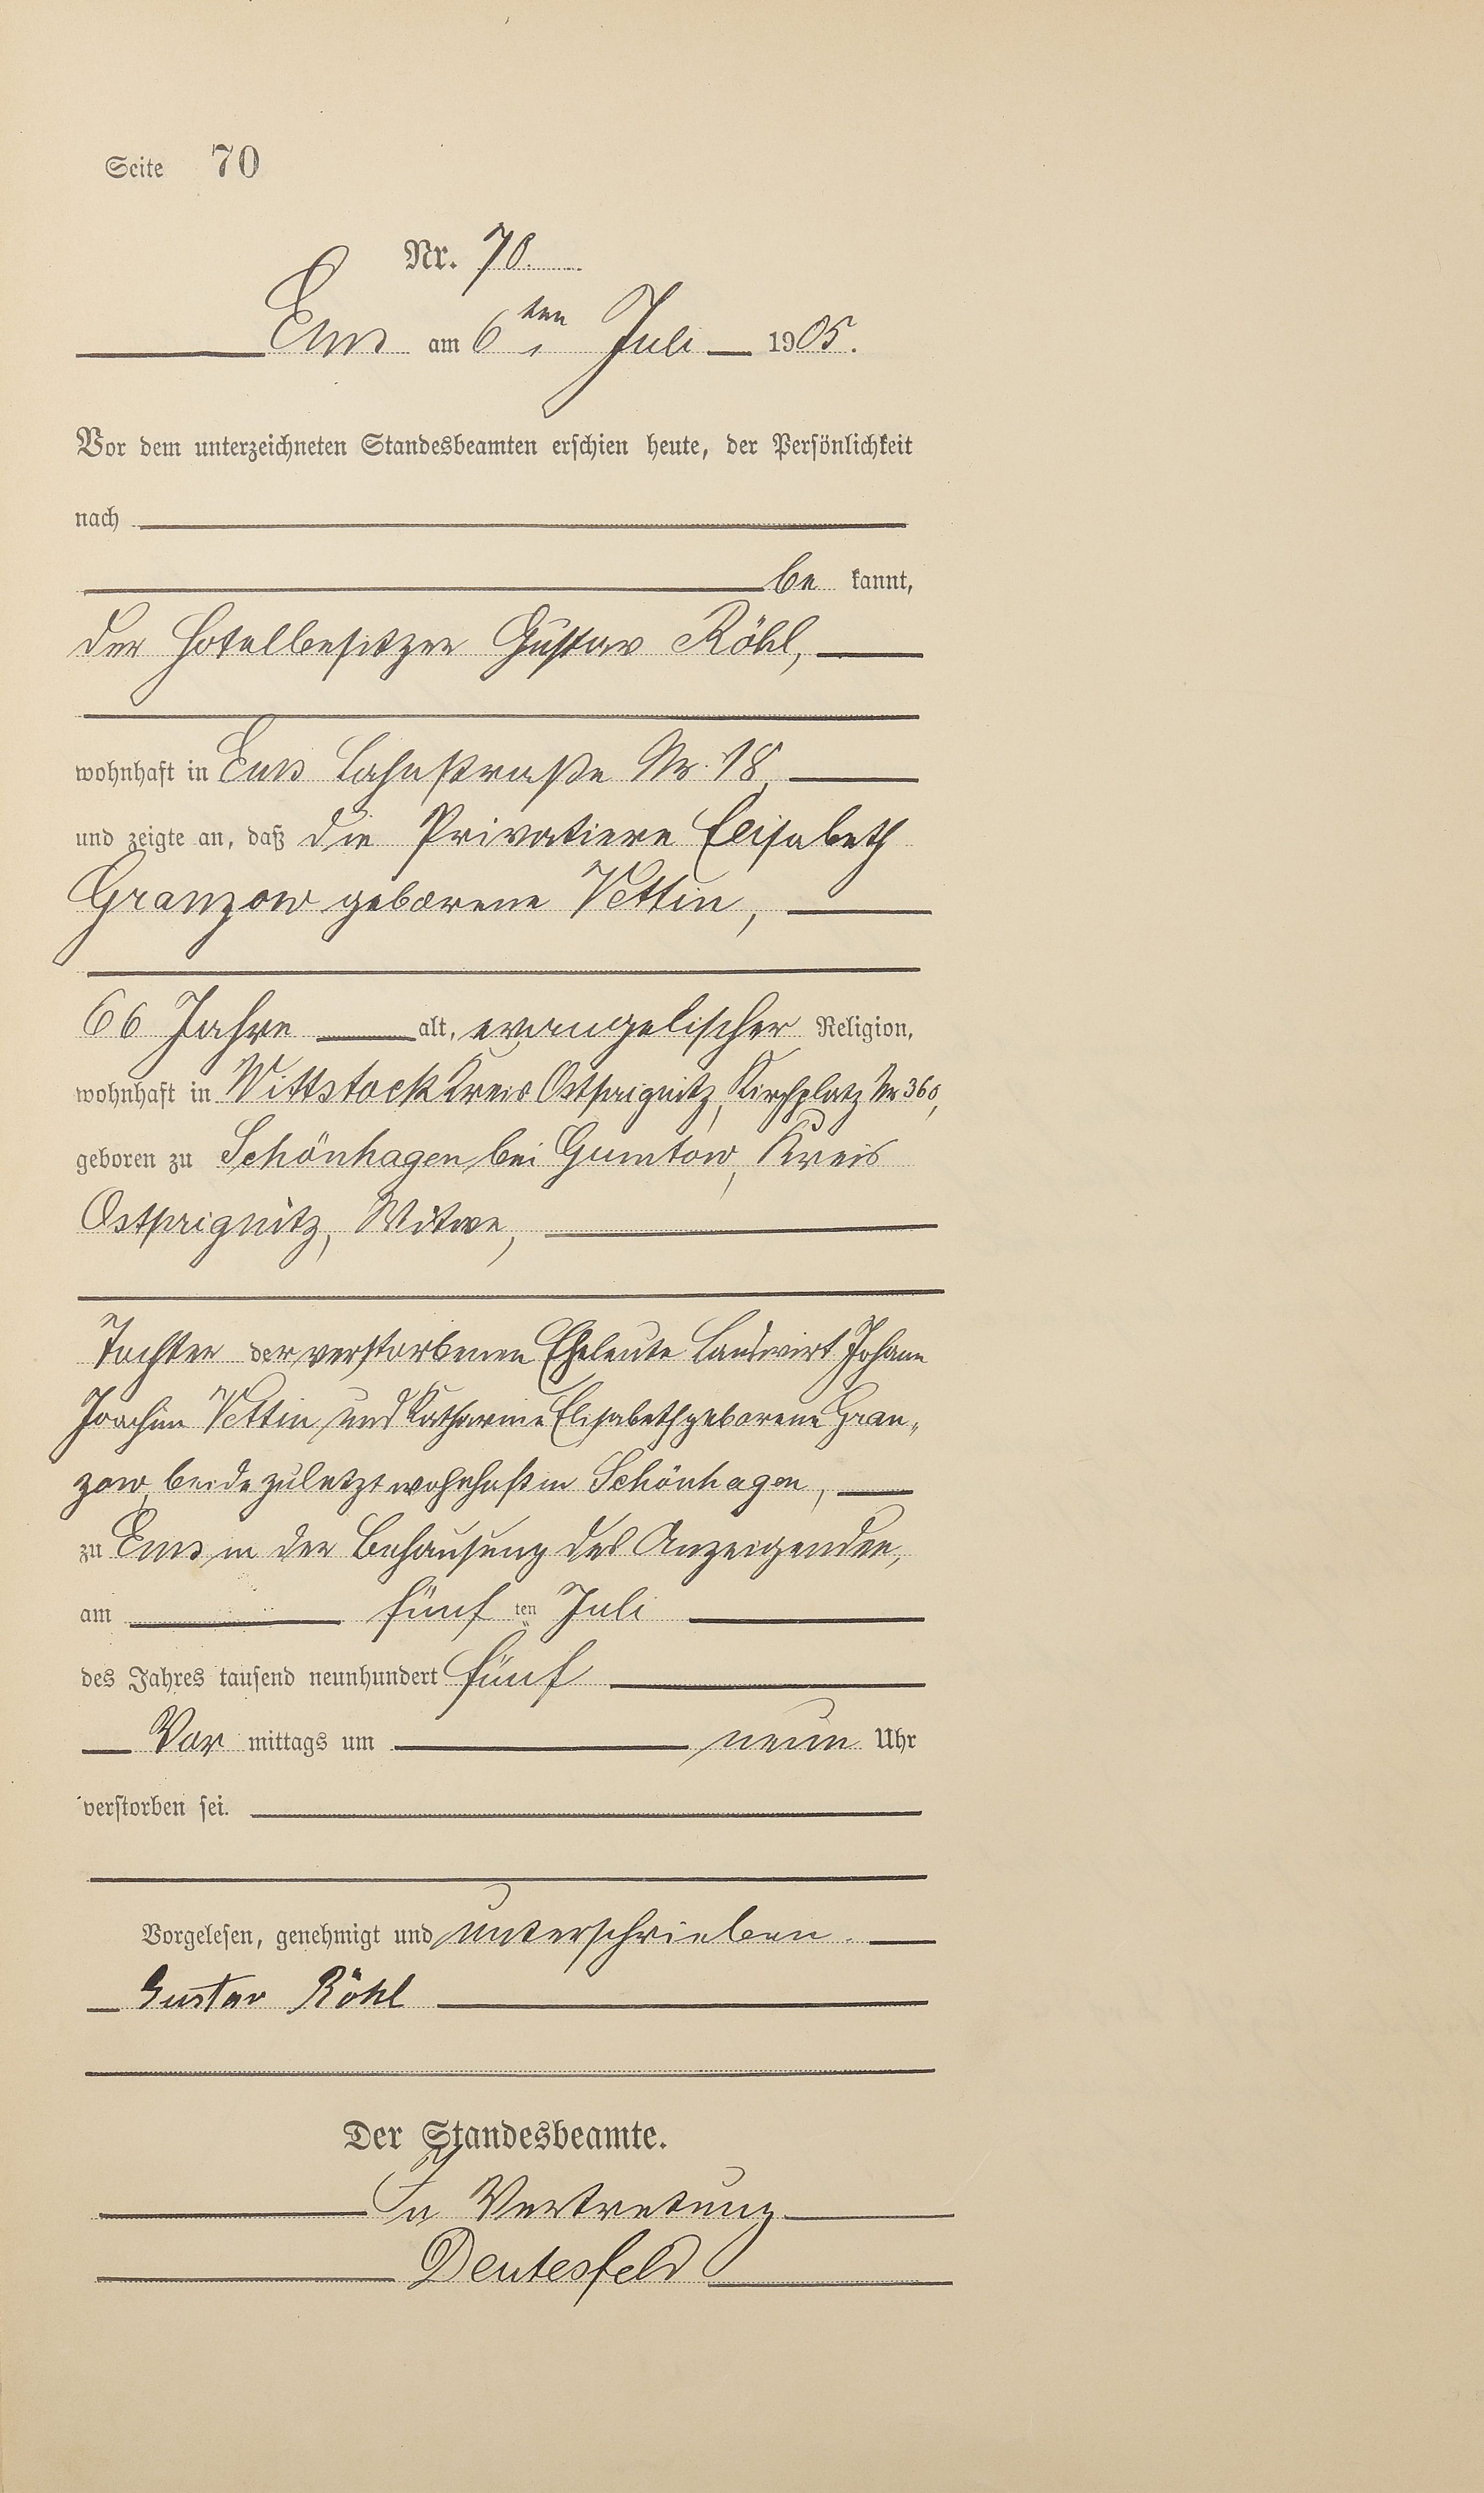 Seite 70
Nr. 70.
Ems am 6ten Juli 1905.
Vor dem unterzeichneten Standesbeamten erschien heute, der Persönlichkeit
nach
be kannt,
der Hotelbesitzer Gustav Röhl,
wohnhaft in Ems Lahnstraße Nr. 18,
und zeigte an, daß die Privatiere Elisabeth
Granzow geborene Vettin,
66 Jahre alt, evangelischer Religion,
wohnhaft in Wittstock Kreis Ostprignitz, Kirchplatz Nr
geboren zu Schönhagen bei Gumtow, Kreis
Ostprignitz, Witwe,
Tochter der verstorbenen Eheleute Landwirt Johann
Joachim Vettin und Katharine Elisabeth geborene Gran„
zow, beide zuletzt wohnhaft in Schönhagen,
zu Ems in der Behausung des Anzeigenden,
am fünf ten Juli
des Jahres tausend neunhundert fünf
Vor mittags um neun Uhr
verstorben sei.
Vorgelesen, genehmigt und unterschrieben.
Gustav Röhl
Der Standesbeamte.
In Vertretung
Deutesfeld